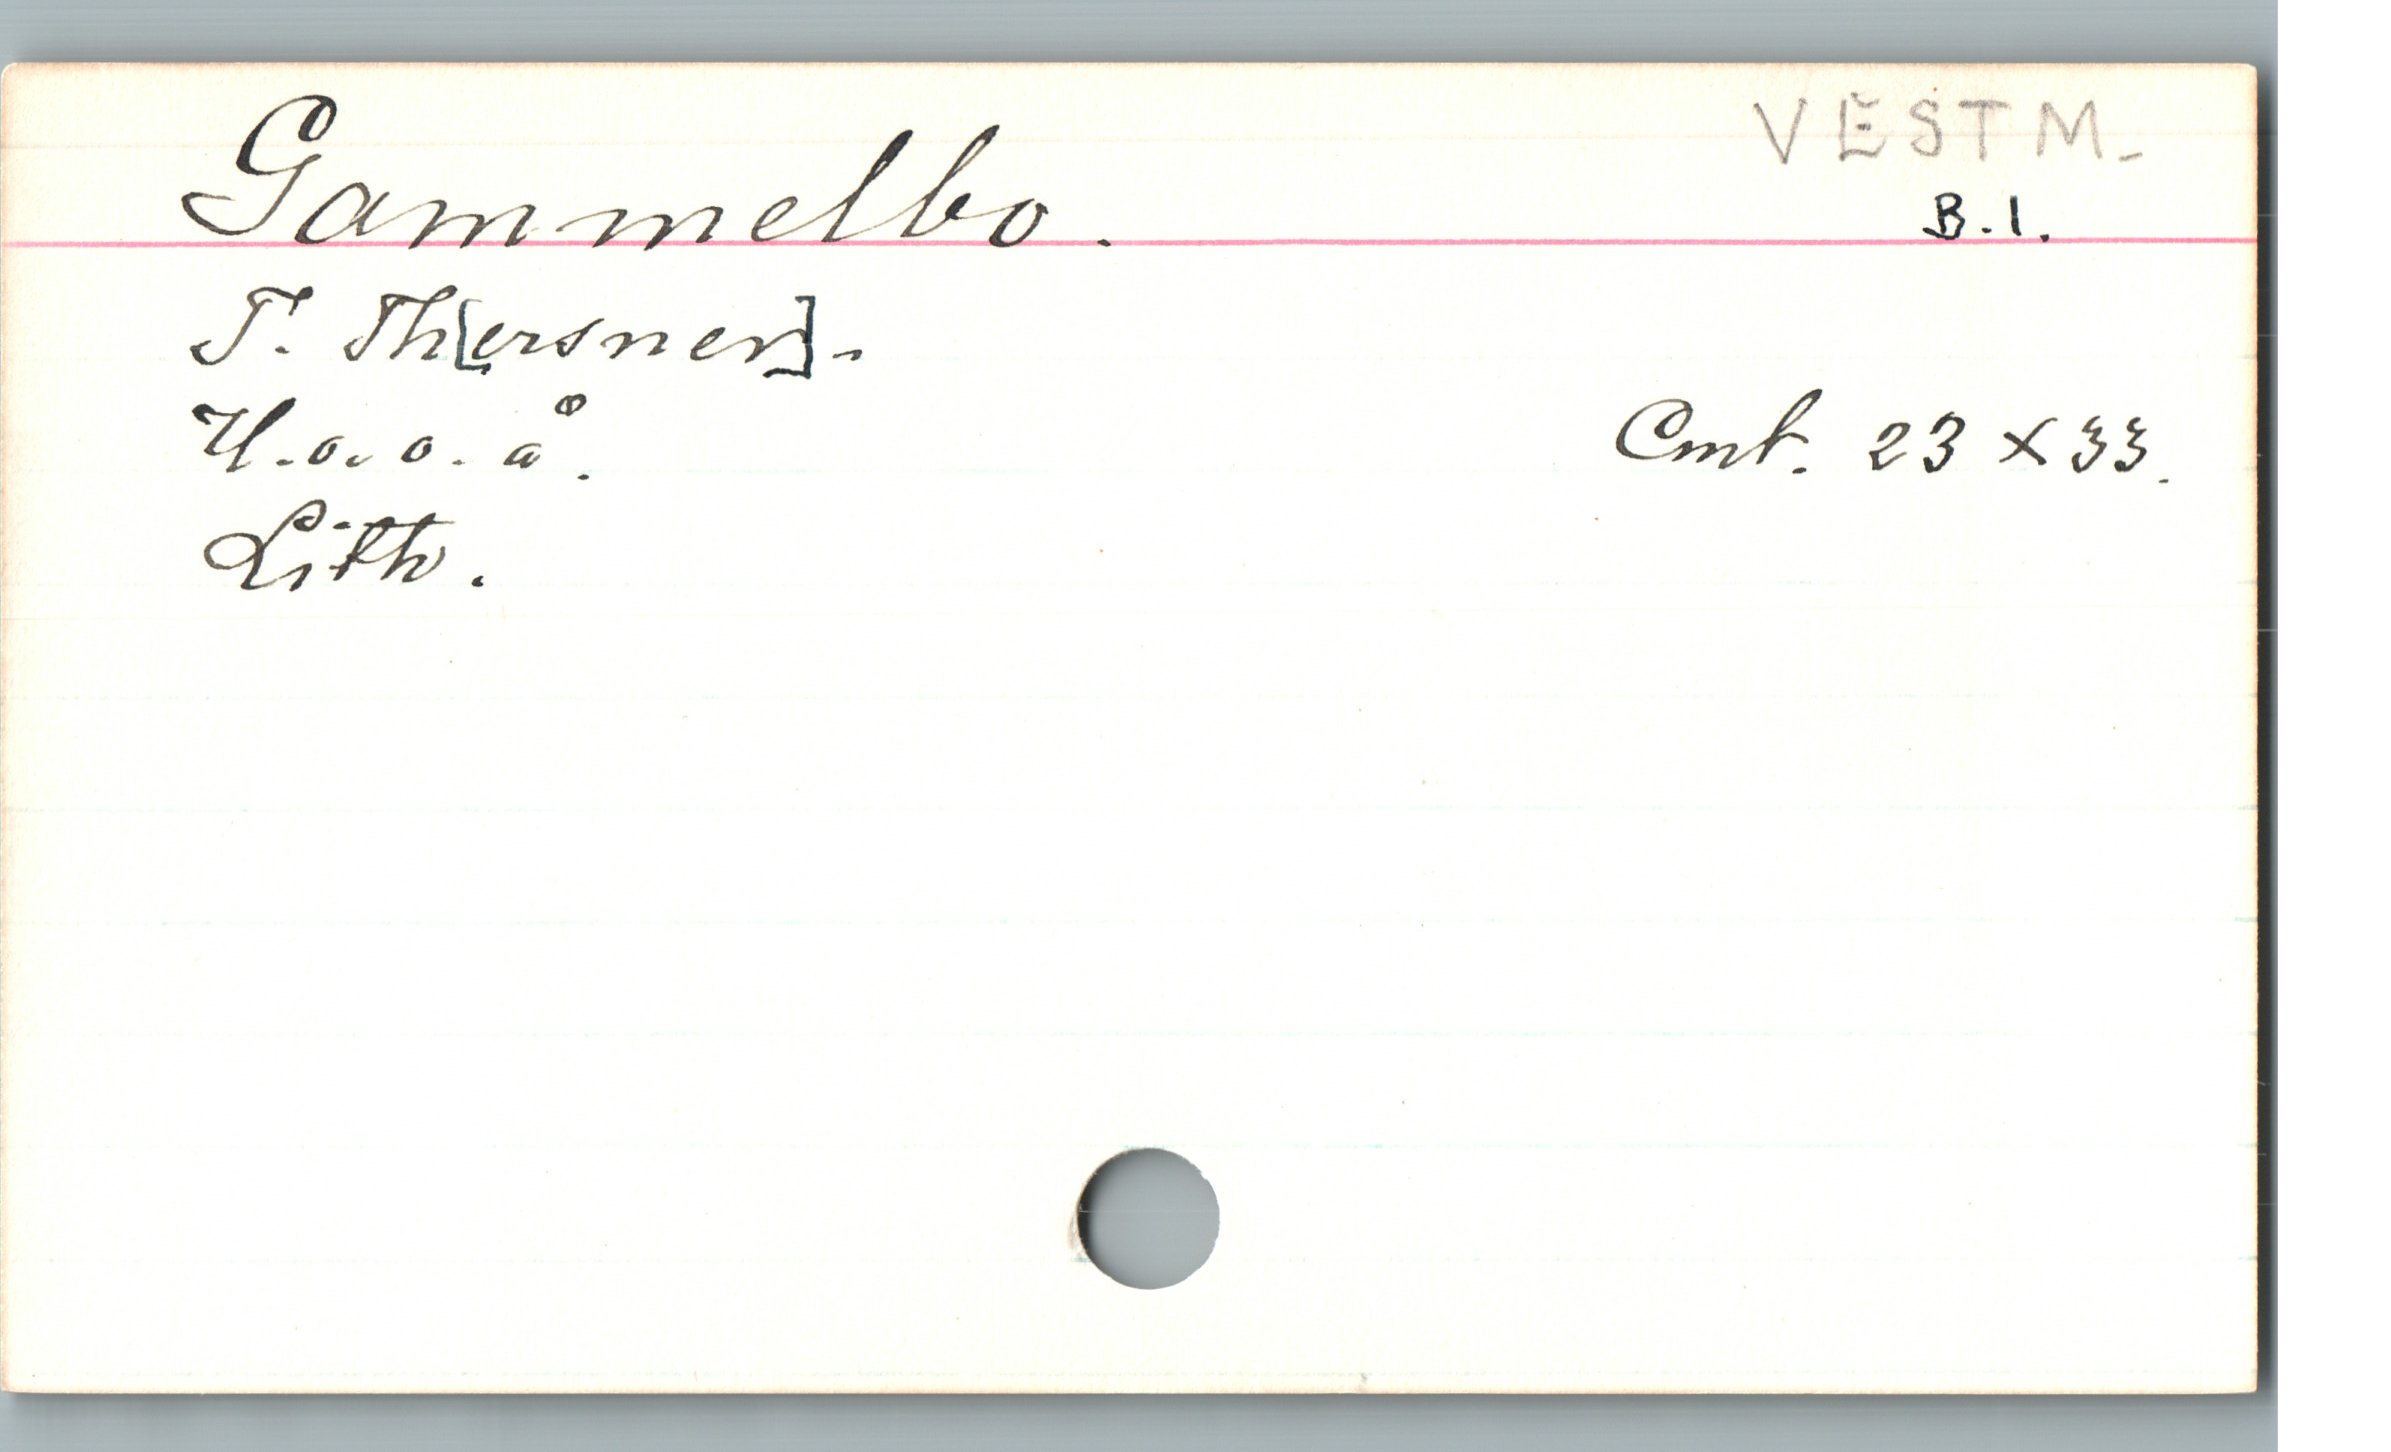 VESTM.
Gammelbo.
B.1.
T. Th[ersner].
U. o. o. å.
Cmt. 23 x 33.
Lith.